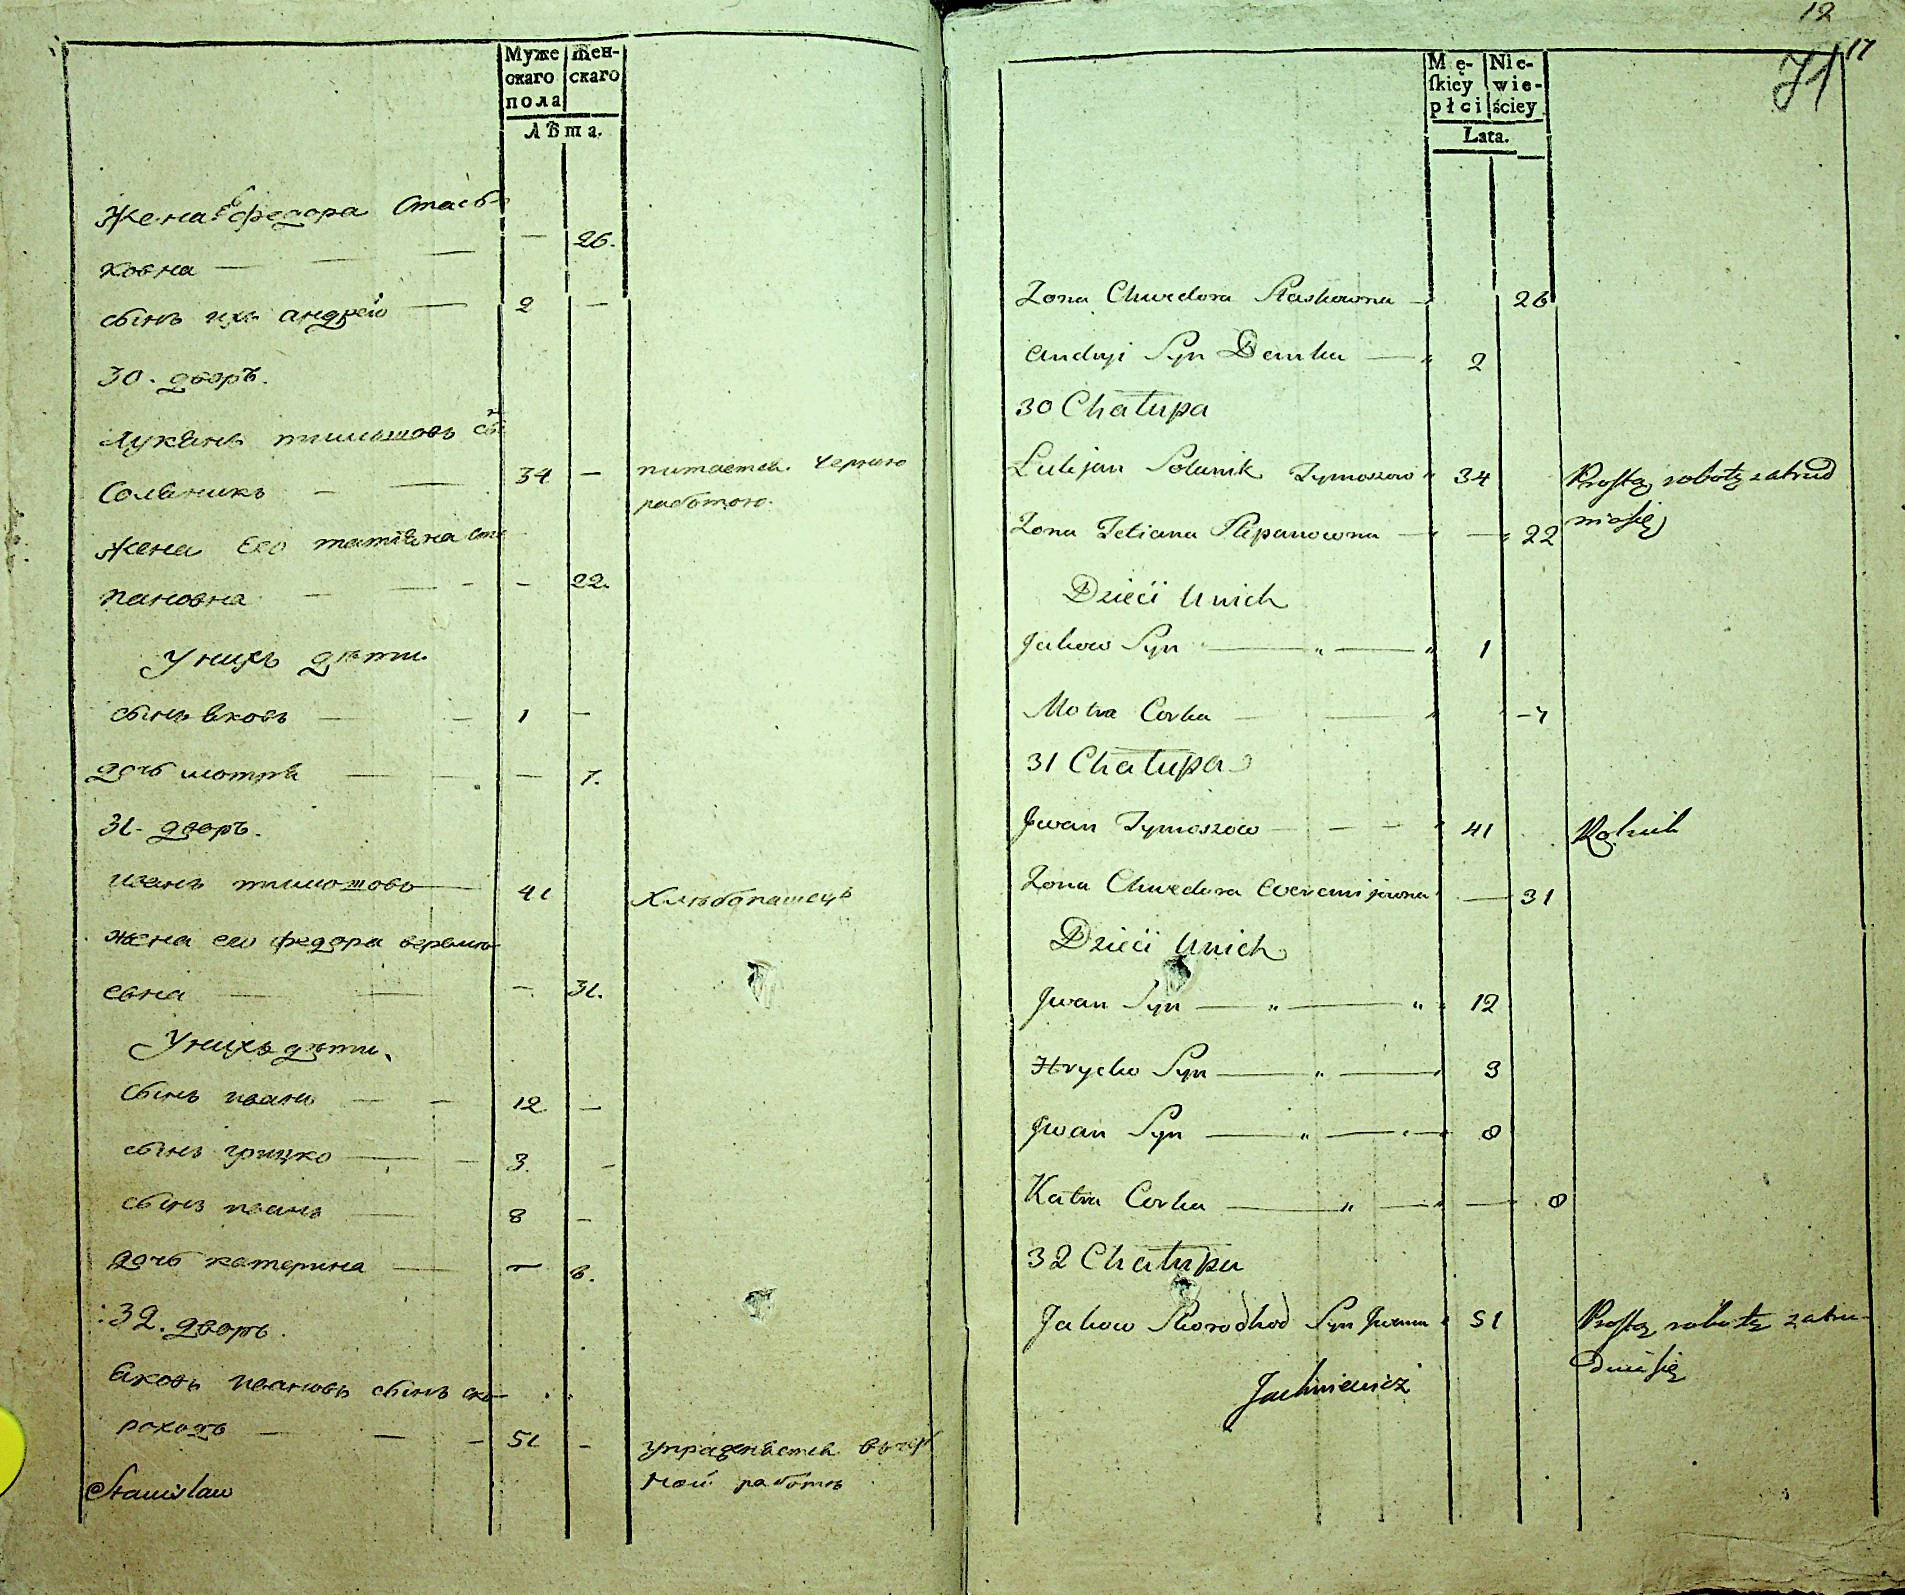 Муже
скаго
пола
Жен-
скаго
Лѣта.
Жена федора Стась-
ковна — — — — 26.
сынъ ихъ андрей — 2 —
30. дворъ.
Лукянъ тимошовъ сы
Соляникъ — — 34 — питается черною
работою.
жена его татіяна сте
пановна — — — — 22.
У нихъ дѣти
сынъ яковъ — — 1 —
дочь мотря — — — — 7.
31. дворъ.
иванъ тимошовъ — 41 Хлѣбопашецъ
жена его федора веремѣ-
евна — — — 31.
У нихъ дѣти.
сынъ иванъ — — 12 —
сынъ грицко — — 3. —
сынъ иванъ — 8 —
дочь катерина — — 8.
32. дворъ.
яковъ ивановъ сынъ ско-
роходъ — — — 51 — упражняется в чер
ной работѣ
Stanislaw
12
17
71
Mę-
skiey
płci
Nie-
wie-
ściey
Lata.
Zona Chwedora Staskowna — 26
Andryi Syn Demka — 2
30 Chałupa
Lukjan Solanik Tymoszow 34 Prostą robotą zatrud
niasię
Zona Tetiana Stepanowna — — 22
Dzieci u nich
Jakow Syn — — 1
Motra Corka — — 7
31 Chałupa
Jwan Tymoszow — — — 41 Rolnik
Zona Chwedora Weremijowna — 31
Dzieci u nich
Jwan Syn — — 12
Hrycko Syn — — 3
Jwan Syn — — 8
Katra Corka — — — 8
32 Chałupa
Jakow Skorochod Syn Jwana 51 Prostą robotą zatru-
dnia się
Jachniewicz